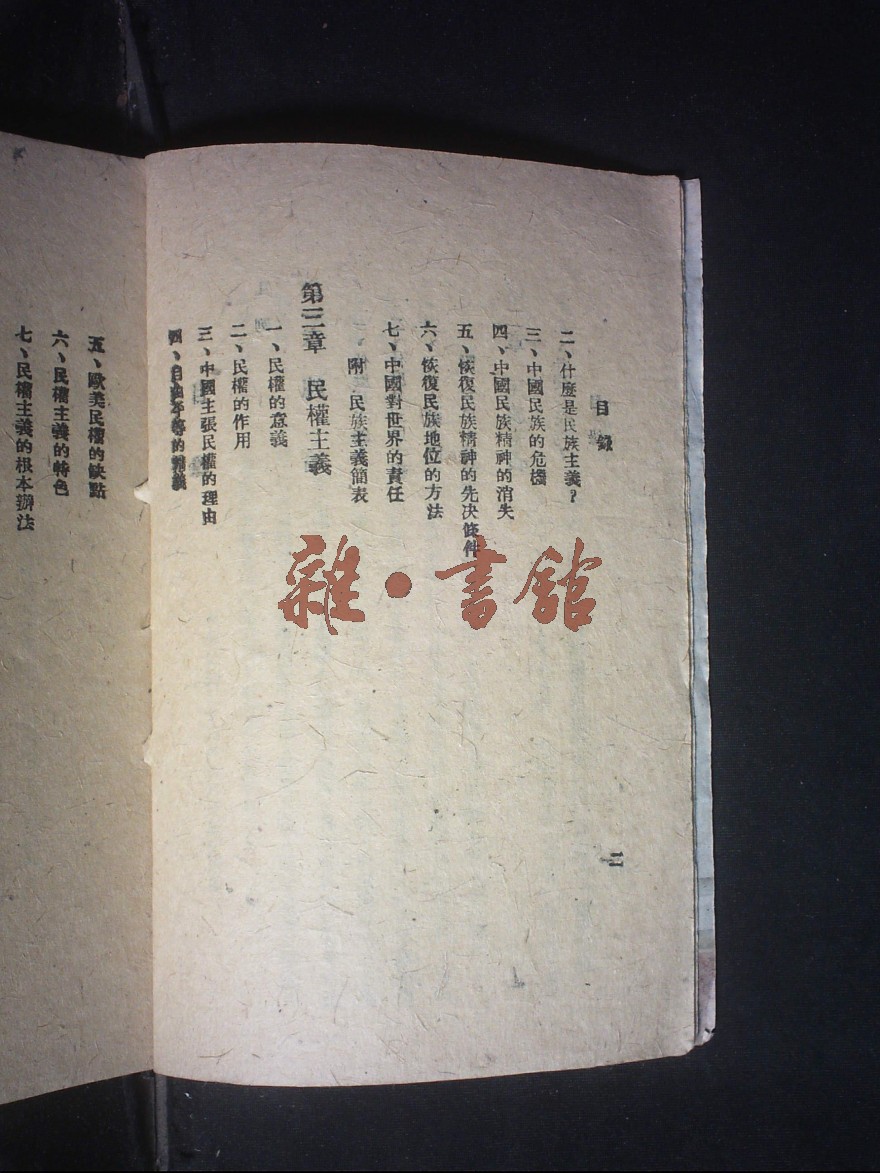 目錄
二、什麼是民族主義？
三、中國民族的危機
四、中國民族精神的消失
五、恢復民族精神的先決條件
六、恢復民族地位的方法
七、中國對世界的責任
附 民族主義簡表
第三章 民權主義
一、民權的意義
二、民權的作用
三、中國主張民權的理由
四、自由平等的
五、歐美民權的缺點
六、民權主義的特色
七、民權主義的根本辦法
二
雜·書館